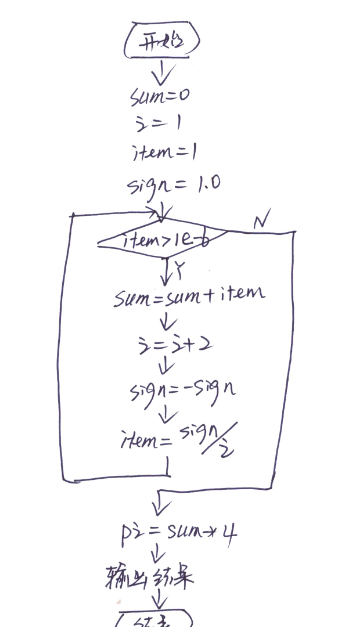 开始
sum=0
i=1
item=1
sign=1.0
item>1e-6
N
Y
sum=sum+item
i=i+2
sign=-sign
item=sign/i
pi=sum*4
输出结果
结束